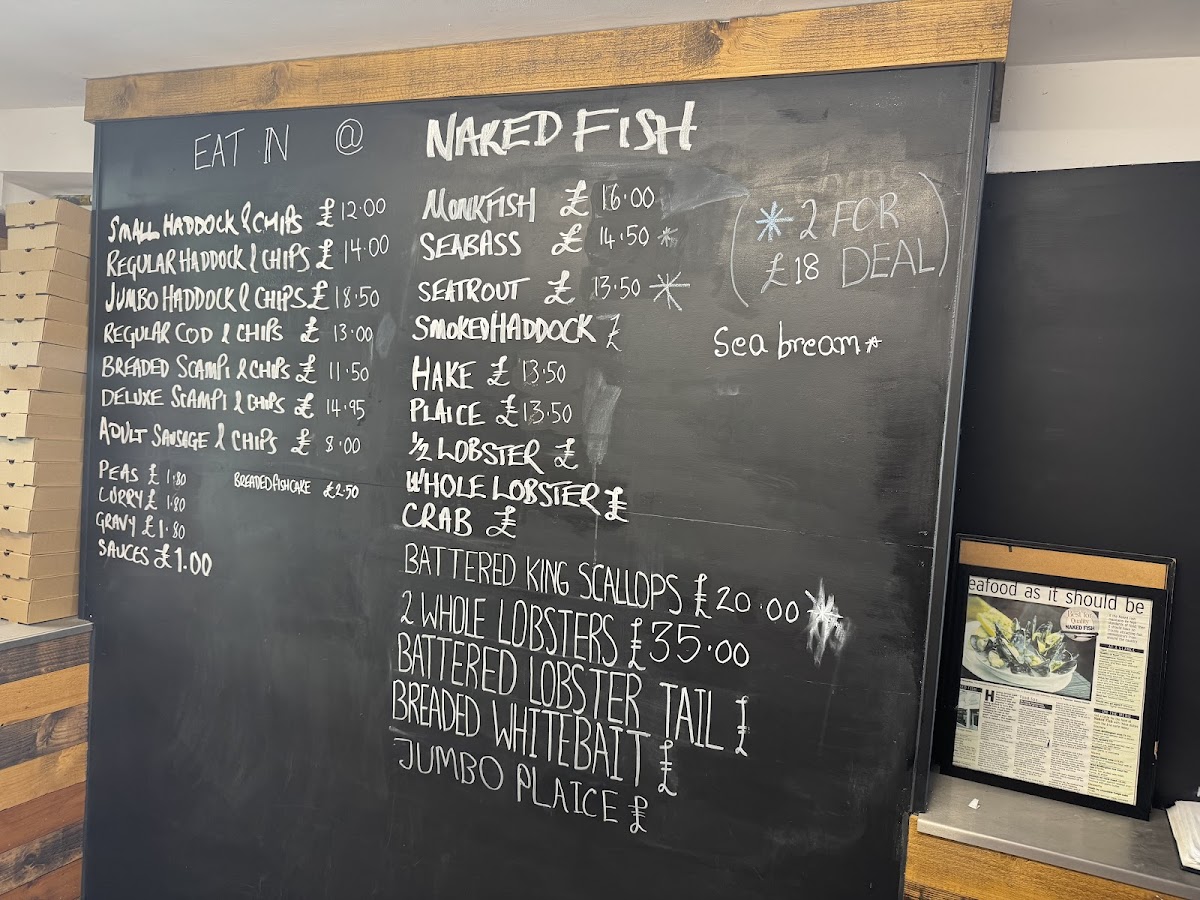 EAT IN @ NAKED FISH
SMALL HADDOCK & CHIPS £ 12.00
REGULAR HADDOCK & CHIPS £ 14.00
JUMBO HADDOCK & CHIPS £ 18.50
REGULAR COD & CHIPS £ 13.00
BREADED SCAMPI & CHIPS £ 11.50
DELUXE SCAMPI & CHIPS £ 14.95
ADULT SAUSAGE & CHIPS £ 8.00
PEAS £ 1.80
BREADED FISHCAKE £2.50
CURRY £ 1.80
GRAVY £ 1.80
SAUCES £1.00
MONKFISH £ 16.00
SEABASS £ 14.50 *
SEATROUT £ 13.50 *
SMOKED HADDOCK £
HAKE £ 13.50
PLAICE £ 13.50
1/2 LOBSTER £
WHOLE LOBSTER £
CRAB £
BATTERED KING SCALLOPS £20.00
2 WHOLE LOBSTERS £35.00
BATTERED LOBSTER TAIL £
BREADED WHITEBAIT £
JUMBO PLAICE £
(* 2 FOR
£18 DEAL)
Sea bream *
eafood as it should be
NAKED FISH